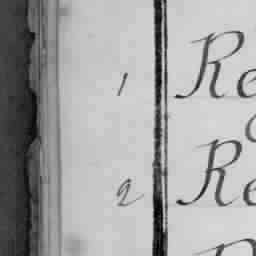 1 Re
2 Re